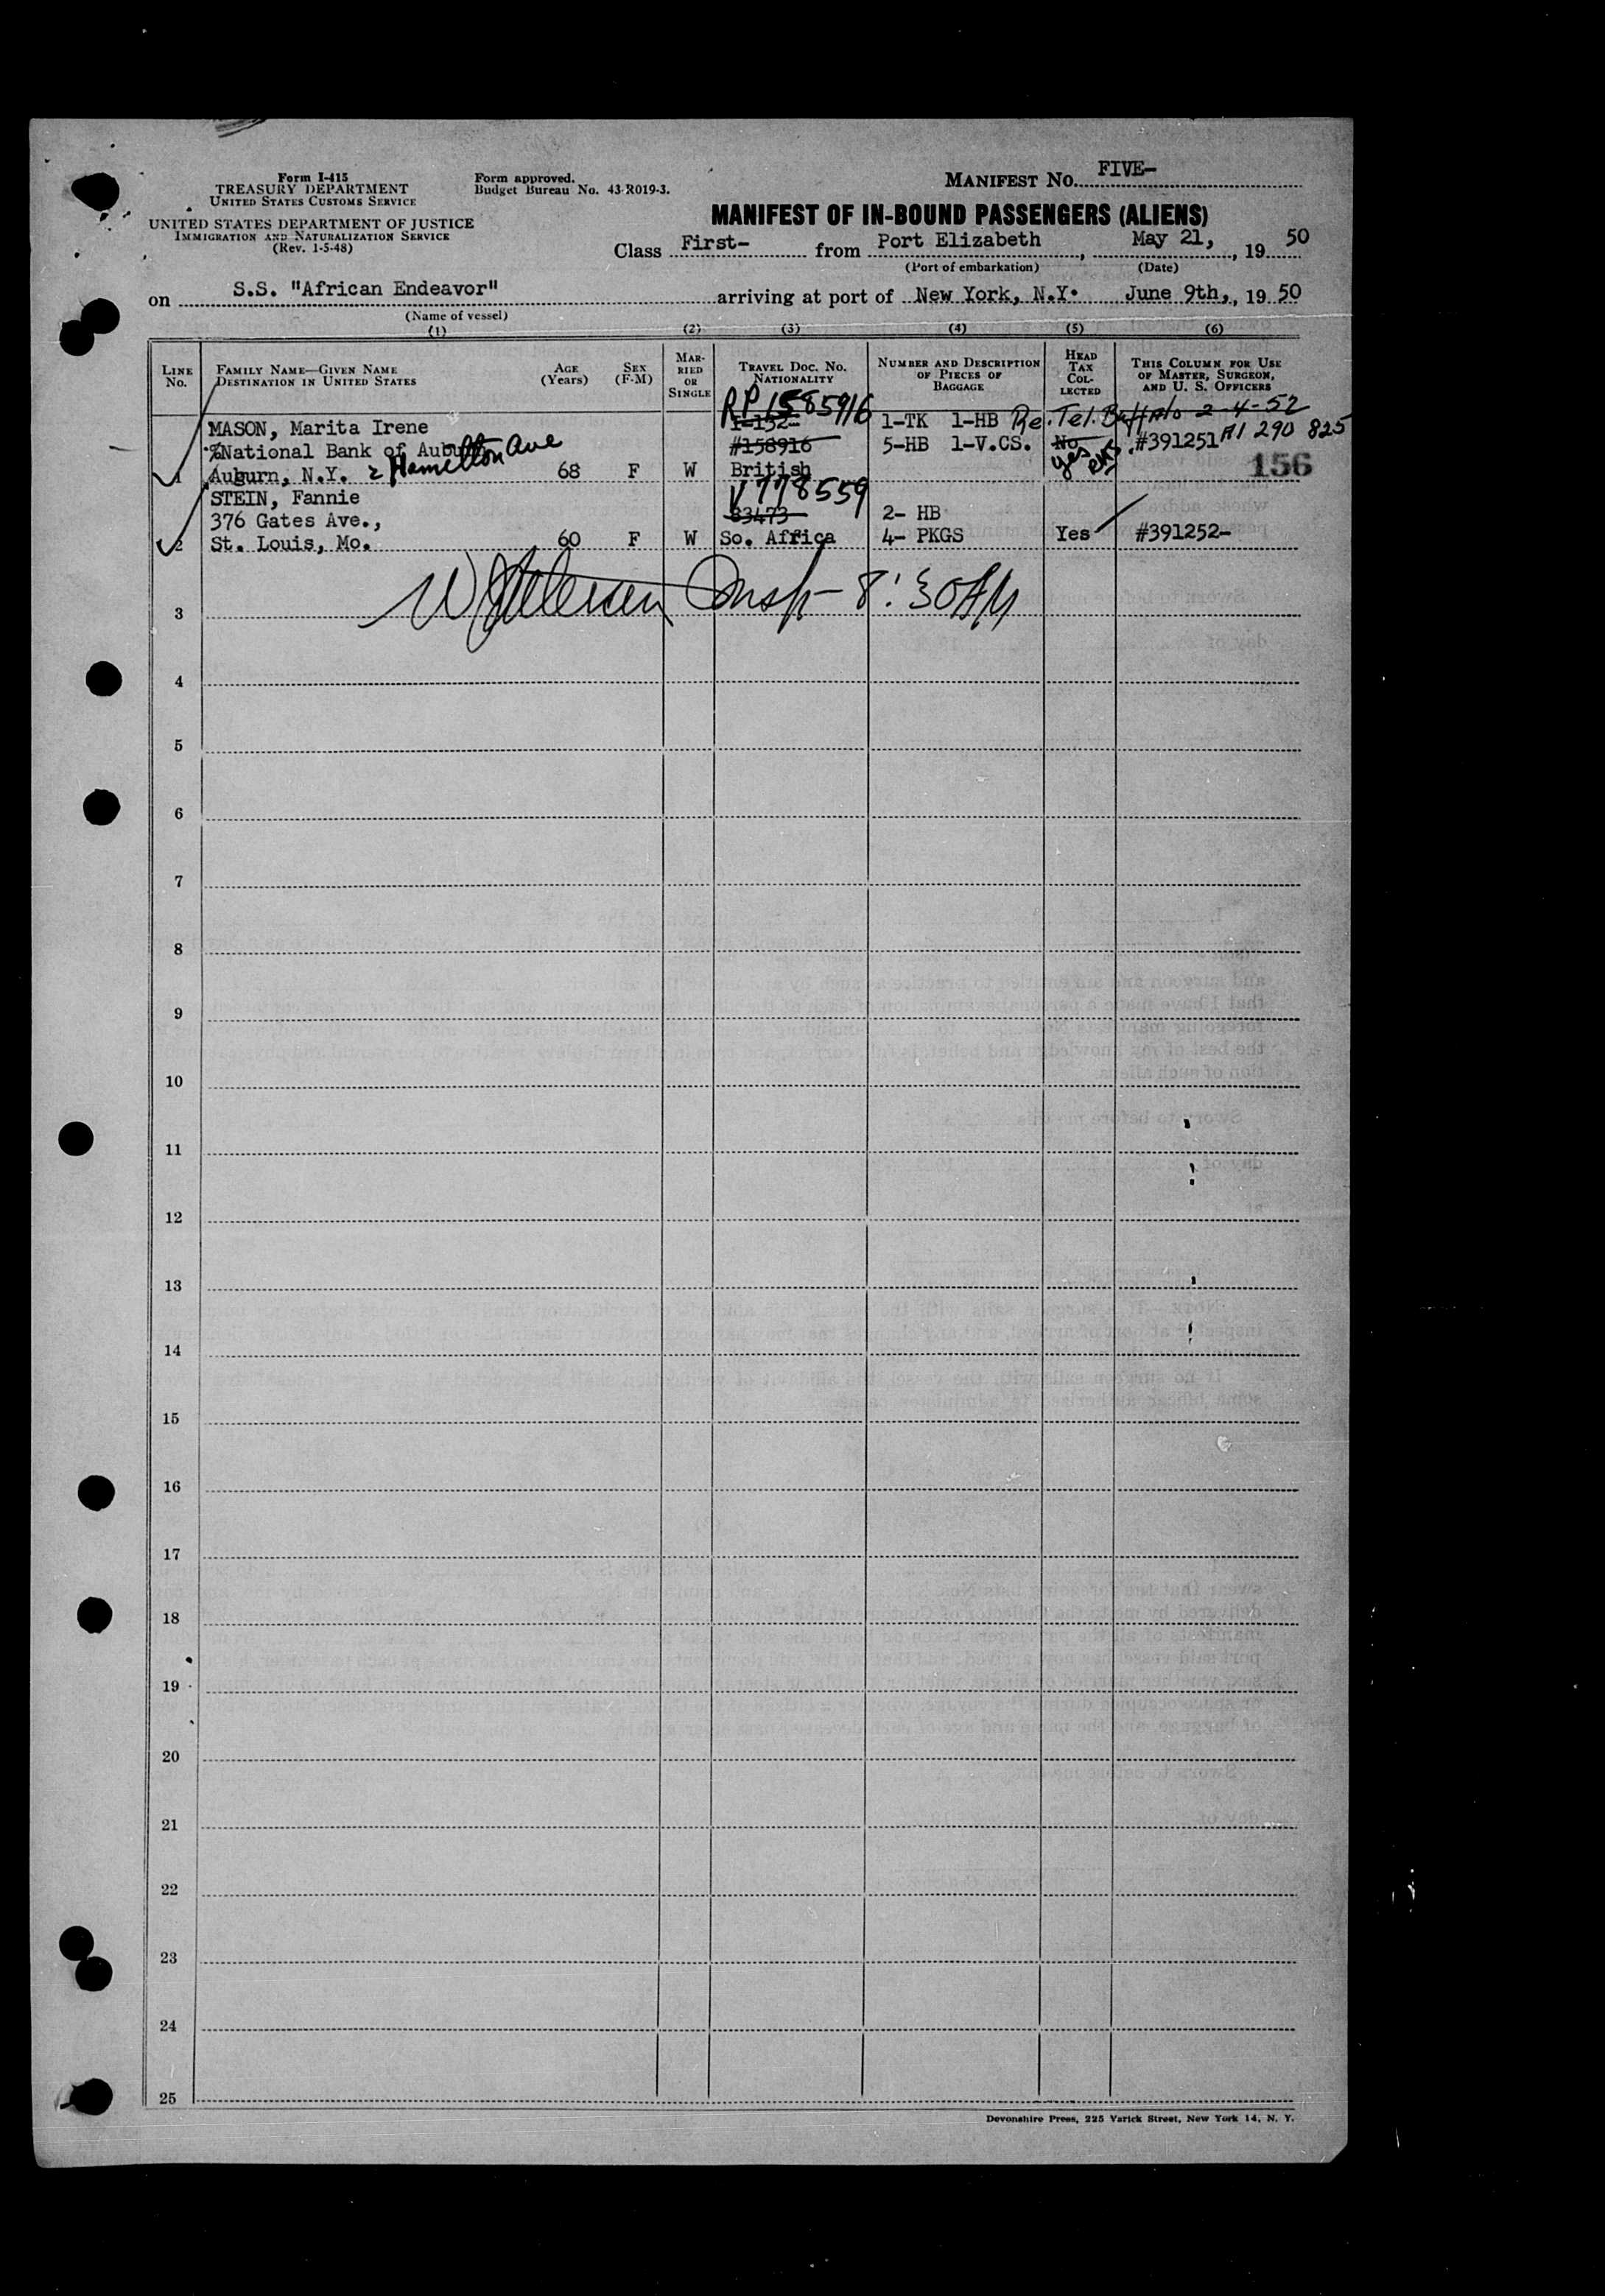 Form I-415
TREASURY DEPARTMENT
UNITED STATES CUSTOMS SERVICE
UNITED STATES DEPARTMENT OF JUSTICE
IMMIGRATION AND NATURALIZATION SERVICE
(Rev. 1-5-48)
Form approved.
Budget Bureau No. 43-R019-3.
MANIFEST No. FIVE-
MANIFEST OF IN-BOUND PASSENGERS (ALIENS)
Class First- from Port Elizabeth, May 21, , 19 50
(Port of embarkation) (Date)
on S.S. "African Endeavor" arriving at port of New York, N.Y. June 9th, , 19 50
(Name of vessel)
(1) (2) (3) (4) (5) (6)
LINE No.
FAMILY NAME—GIVEN NAME
DESTINATION IN UNITED STATES
AGE (Years)
SEX (F-M)
MARRIED OR SINGLE
TRAVEL DOC. NO. NATIONALITY
NUMBER AND DESCRIPTION OF PIECES OF BAGGAGE
HEAD TAX COLLECTED
THIS COLUMN FOR USE OF MASTER, SURGEON, AND U. S. OFFICERS
RP 1585916
MASON, Marita Irene I-132- 1-TK 1-HB Re. Tel. Buffalo 2-4-52
%National Bank of Auburn Ave #158916 5-HB 1-V.CS. No #391251 A1 290 825
1 Auburn, N.Y. 2 Hamelton 68 F W British yes 156
STEIN, Fannie V778559
376 Gates Ave., 83473 2- HB
2 St. Louis, Mo. 60 F W So. Africa 4- PKGS Yes #391252-
Insp- 8:30 AM
3
4
5
6
7
8
9
10
11
12
13
14
15
16
17
18
19
20
21
22
23
24
25
Devonshire Press, 225 Varick Street, New York 14, N. Y.